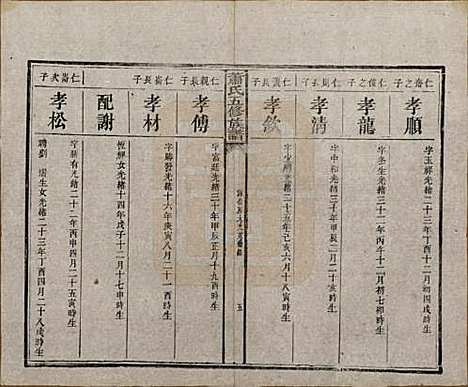 仁裔之子
孝順
字玉祥光緒二十三年丁酉十二月初四戌時生
仁俊之子
孝龍
字冬生光緒三十二年丙午十二月初七卯時生
仁周長子
孝清
字中和光緒三十年甲辰二月二十亥時生
仁義長子
孝欽
光緒二十五年己亥六月十八寅時生
蕭氏五修族譜
五
仁親長子
孝傅
字富廷光緒三十年甲辰正月十九酉時生
仁崙長子
孝材
字勝發光緒十六年庚寅八月二十一酉時生
配謝
恆經女光緒十四年戊子十二月十七申時生
字新有光緒二十二年丙申四月二十五寅時生
仁崙次子
孝松
聘劉 瑞生女光緒二十三年丁酉四月二十八戌時生